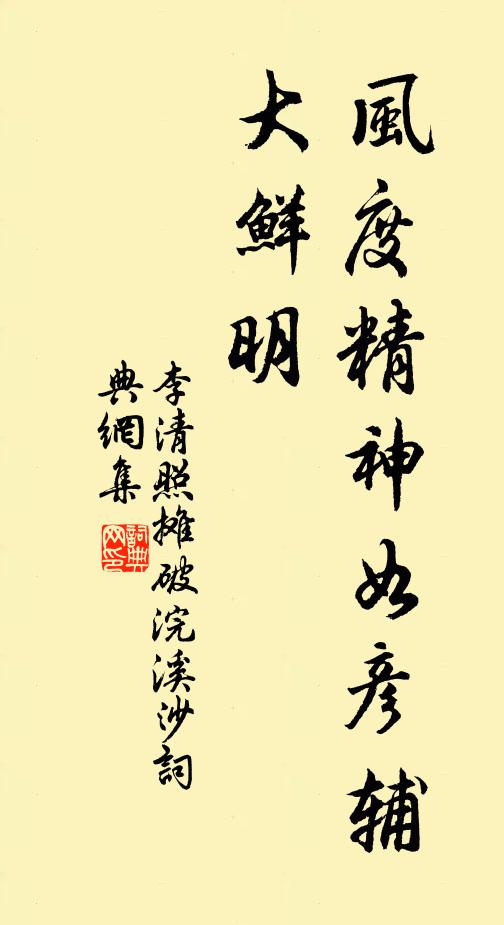 風度精神如彦辅
大鮮明
李清照摊破浣溪沙詞
典網集
詞典网印